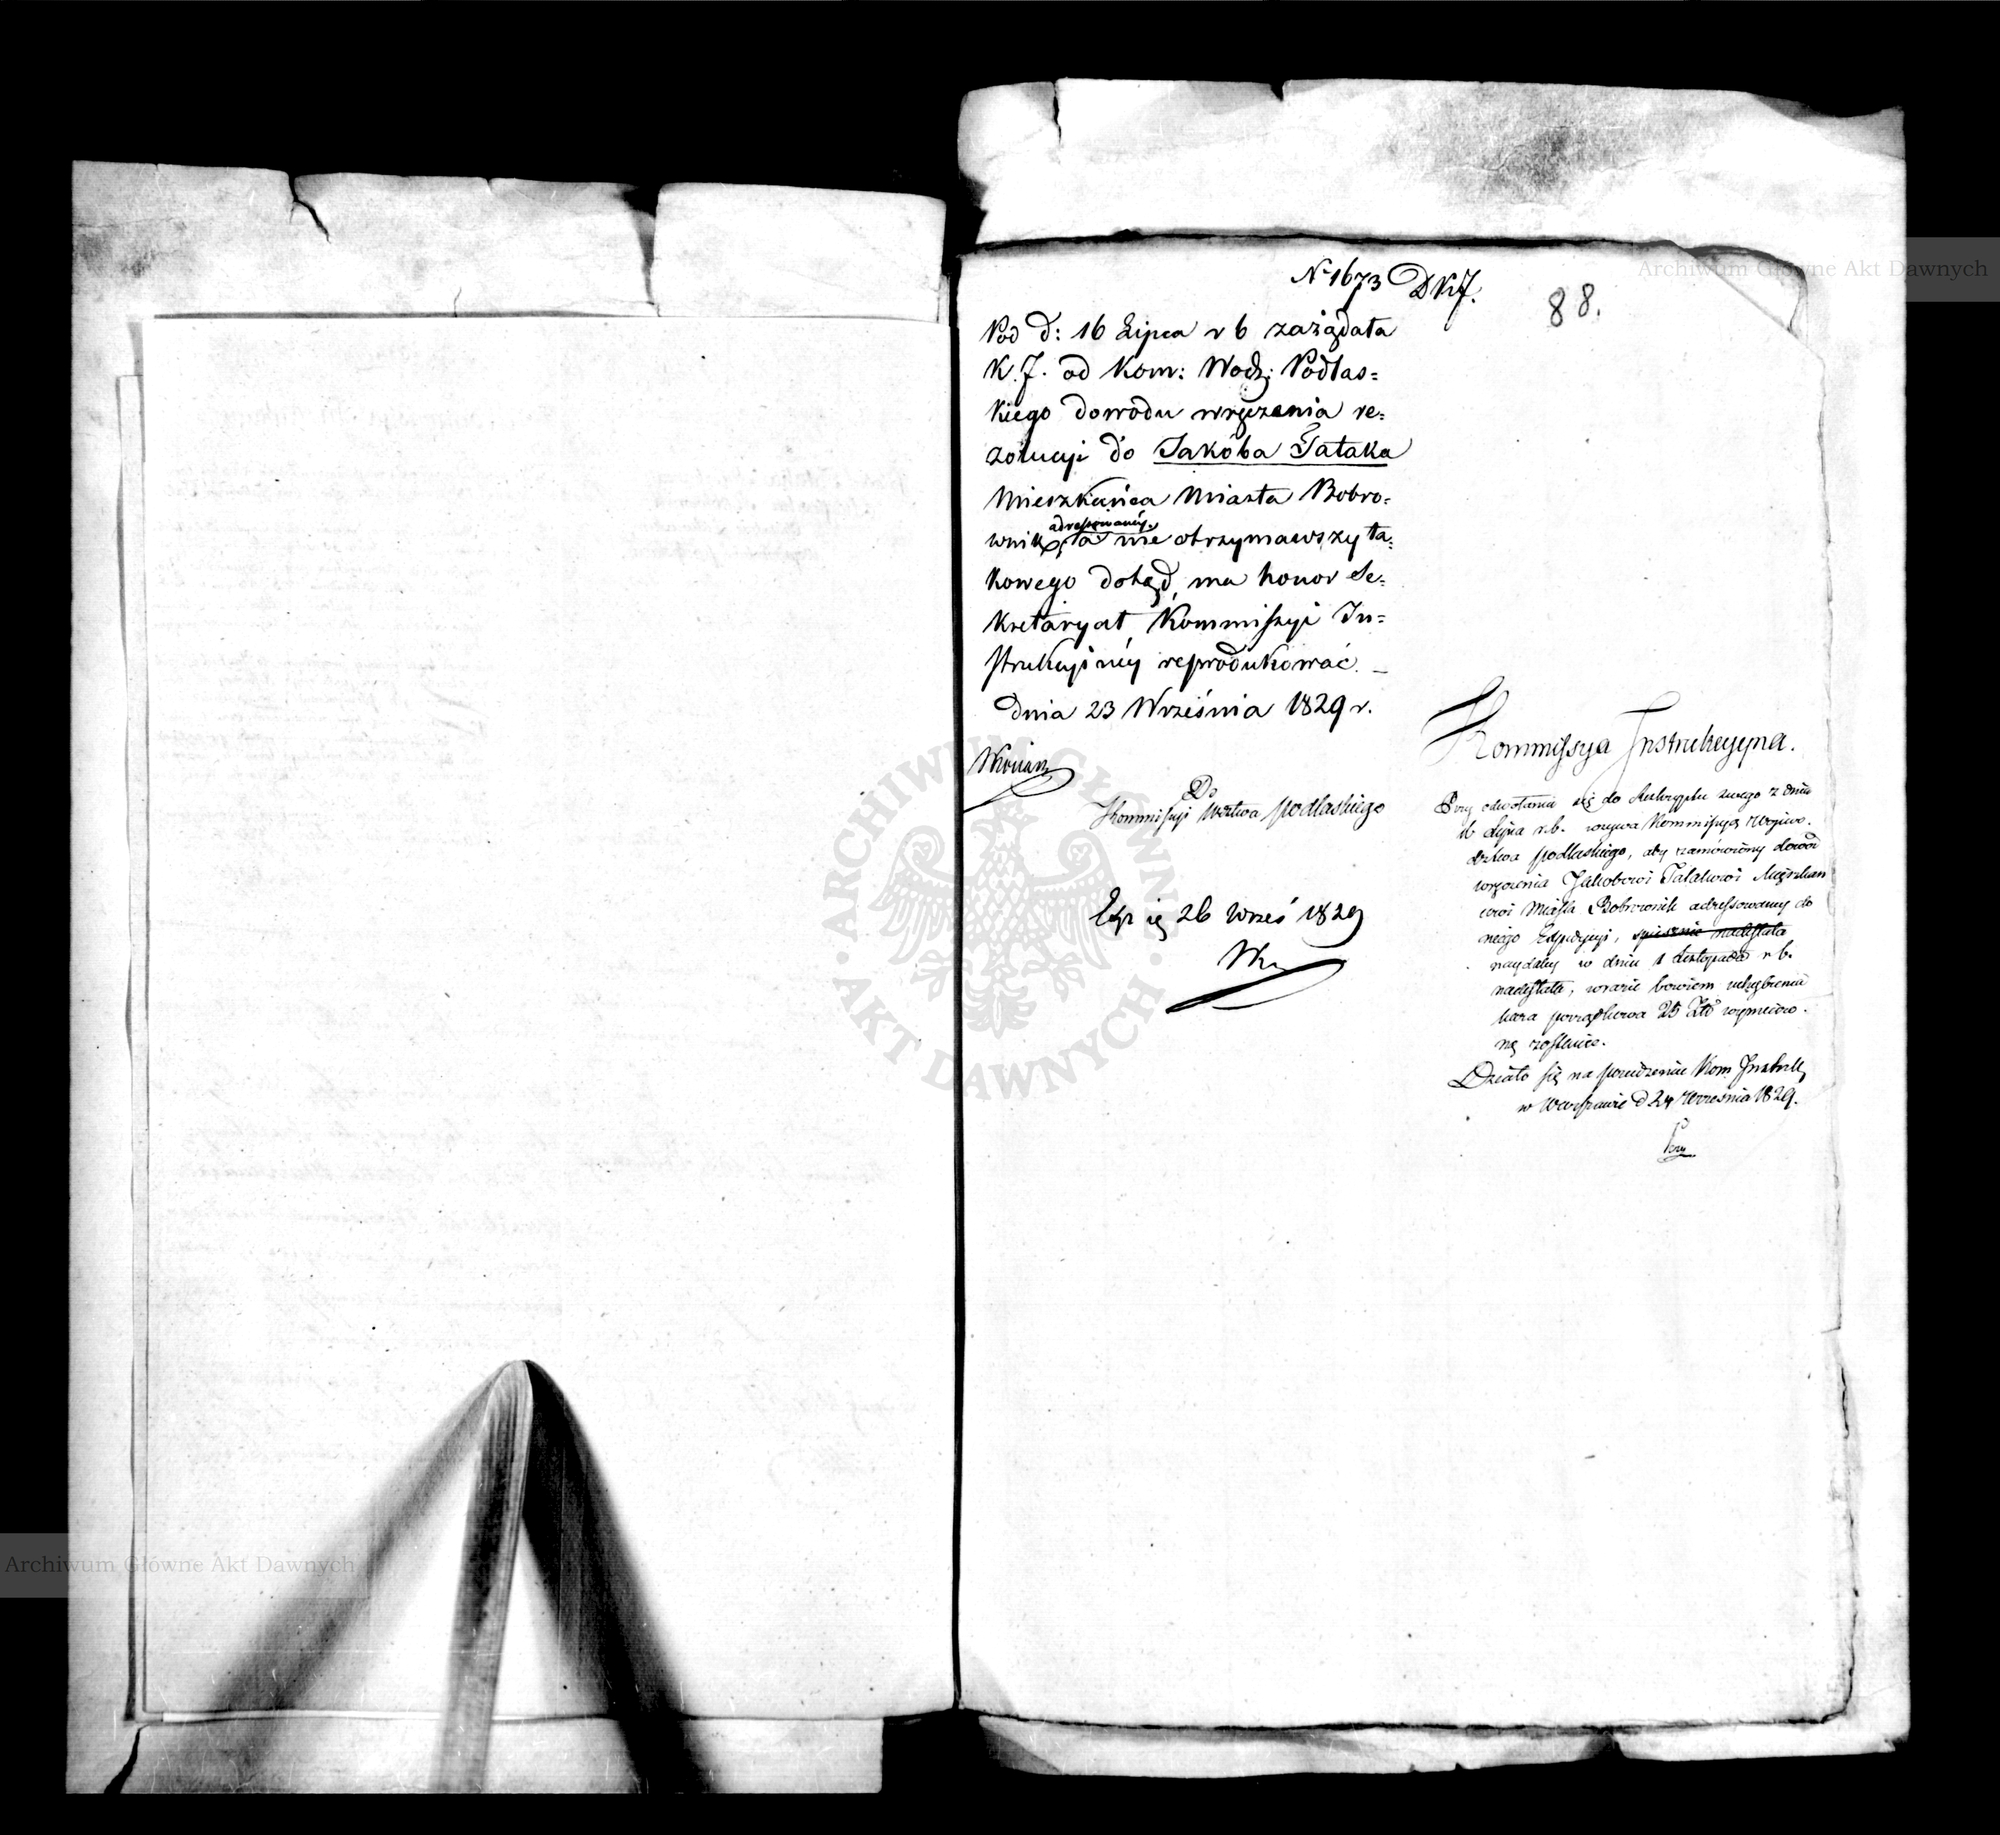 No 1673 D K.J.
88.
Pod d: 16 Lipca r b zażądała
K. J. od Kom: Wodz: Podlas=
kiego dowodu wręczenia re=
zolucyi do Jakóba Tałaka
Mieszkańca Miasta Bobro=
wnik adressowanéy, ta nie otrzymawszy ta=
kowego dotąd, ma honor Se=
kretaryat Kommissyi In=
strukcyinéy reprodukować. –
dnia 23 Września 1829 r.
Do
Kommissyi Wdztwa Podlaskiego
Exp ię 26 Wrześ 1829
Kommissya Instrukcyyna.
Przy odwołaniu się do Reskryptu swego z dnia
16 Lipca r.b. wzywa Kommissyą Wojewó.
dztwa Podlaskiego, aby zamówiony dowód
wręczenia Jakobowi Tałakowi Mieszkań
cowi Miasta Bobrownik adressowany do
niego Expedycyi, spiesznie nadesłała
naydaley w dniu 1 Listopada r b.
nadesłała, w razie bowiem uchybienia
kara porządkowa 25 Złp wymierzo.
ną zostanie.
Działo się na posiedzeniu Kom Instrukc
w Warszawie d 24 Września 1829.
Archiwum Główne Akt Dawnych
ARCHIWUM GŁÓWNE · AKT DAWNYCH ·
Archiwum Główne Akt Dawnych